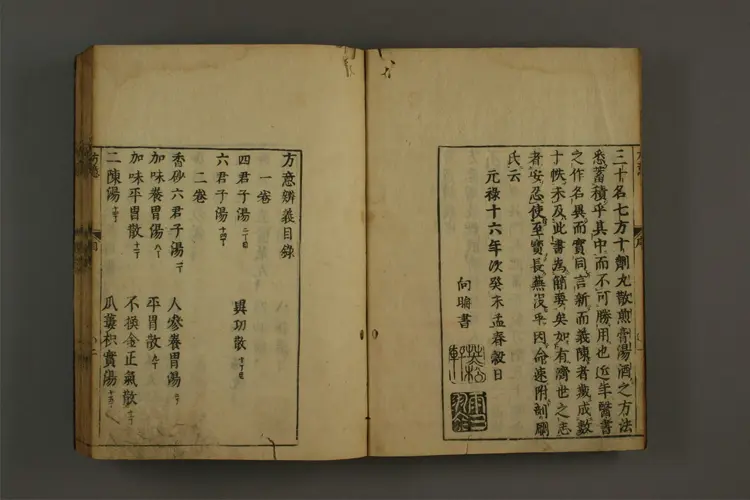 三十名七方十劑丸散煎膏湯酒之方法
悉蓄積乎其中而不可勝用也近年醫書
之作名異而實同言新而義陳者幾成數
十帙未及此書為簡要矣如有濟世之志
者安忍使至寶長蕪没乎因命速附剞劂
氏云
元禄十六年次癸未孟春穀日
向陽書
方意辨義目錄
一卷
四君子湯
異功散
六君子湯
二卷
香砂六君子湯
人參養胃湯
加味養胃湯
平胃散
加味平胃散
不換金正氣散
二陳湯
瓜蔞枳實湯